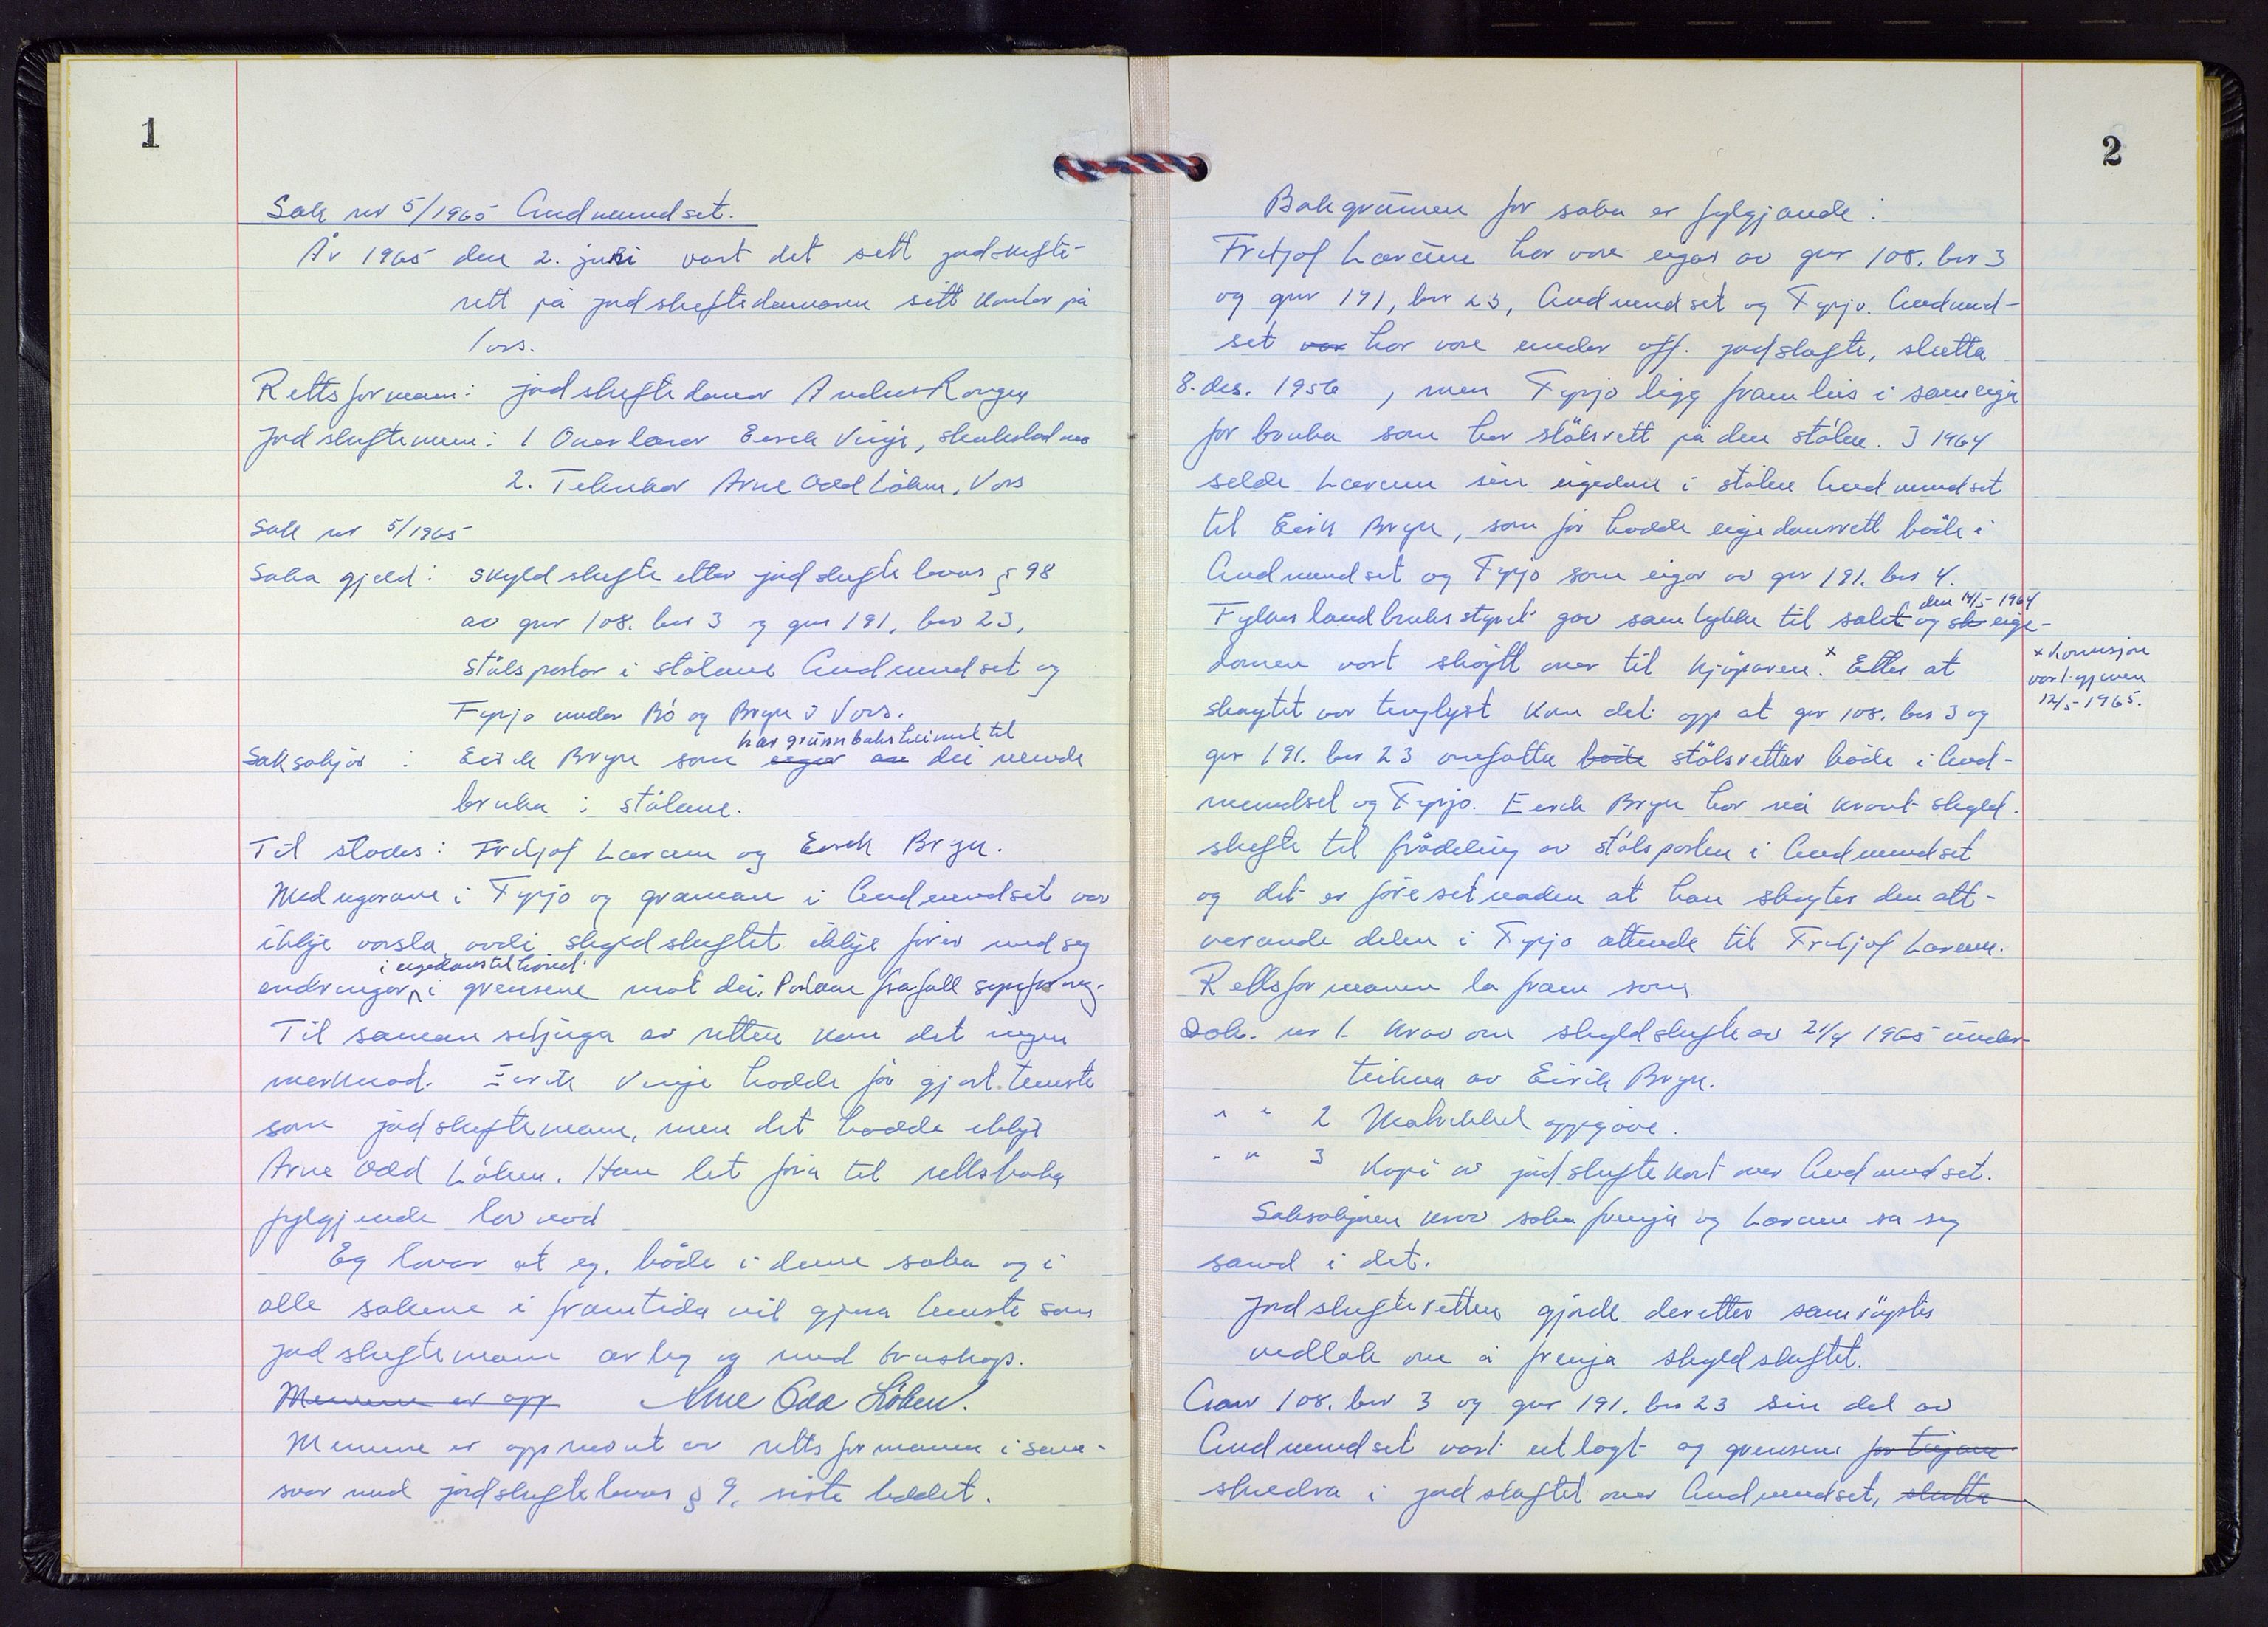 1
Sak nr 5/1965 Gudmundset.
År 1965 den 2. juni vart det sett jordskifte-
rett på jordskiftedomaren sitt kontor på
Voss.
Rettsformann: jordskiftedomar Anders Rongen
Jordskiftemenn: 1 Overlærar Eirik Vinje,
2. Teknikar Arne Odd Löken, Voss
Sak nr 5/1965
Saka gjeld: skyldskifte etter jordskiftelova § 98
av gnr 108. bnr 3 og gnr 191, bnr 23,
stölspartar i stölane Gudmundset og
Fyrjo under Bö og Bryn i Voss.
har grunnboksheimel til
Saksökjar : Eirik Bryn som eigar av dei nemnde
bruka i stölane.
Til stades: Fritjof Lavann og Eirik Bryn.
Medeigarane i Fyrjo og grannane i Gudmundset var
ikkje varsla avdi skyldskiftet ikkje förer med seg
i eigedomstilhövet
endringar i grensene mot dei. Partane frafall synfaring.
Til samansetjinga av retten kom det ingen
merknad. Eirik Vinje hadde för gjort teneste
som jordskiftemann, men det hadde ikkje
Arne Odd Löken. Han let föra til rettsboka
fylgjende lovnad
Eg lovar at eg, både i denne saka og i
alle sakene i framtida vil gjera teneste som
jordskiftemann ærleg og med truskap.
Mennene er opp Arne Odd Löken.
Mennene er oppnemnt av rettsformannen i sam-
svar med jordskiftelova § 9, siste leddet.
2
Bakgrunnen for saka er fylgjande:
Fritjof Lavann har vore eigar av gnr 108. bnr 3
og gnr 191, bnr 23, Gudmundset og Fyrjo. Gudmund-
set var har vore under off. jordskifte, slutta
8. des. 1956, men Fyrjo ligg framleis i sameige
for bruka som har stölsrett på den stölen. I 1964
selde Lavann sin eigedom i stölen Gudmundset
til Eirik Bryn, som för hadde eigedomsrett både i
Gudmundset og Fyrjo som eigar av gnr 191. bnr 4.
den 14/5 1964
Fylkeslandbruksstyret gav samtykke til salet og sk eige-
domen vart skøytt over til kjöparen.x Etter at
x Konsesjon
vart gjeven
12/5 1965.
skøytet var tinglyst kom det opp at gnr 108. bnr 3 og
gnr 191. bnr 23 omfatta både stölsrettar både i Gud-
mundset og Fyrjo. Eirik Bryn har nå kravt skyld-
skifte til frådeling av stölsparten i Gudmundset
og det er föresetnaden at han skøyter den att-
verande delen i Fyrjo attende til Fritjof Lavann.
Rettsformannen la fram som
Dok. nr 1. Krav om skyldskifte av 21/4 1965 under-
teikna av Eirik Bryn.
" " 2 Matrikkel oppgåve.
" " 3 Kopi av jordskiftekart over Gudmundset.
Saksökjaren krov saka fremja og Lavann sa seg
samd i det.
Jordskifteretten gjorde deretter samröystes
vedtak om å fremja skyldskiftet.
Gnr 108. bnr 3 og gnr 191. bnr 23 sin del av
Gudmundset vart utlagt og grensene
skildra i jordskiftet over Gudmundset, slutta